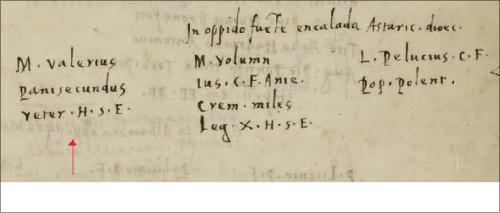 In oppido fuẽte encalada Asturic. diœc.
M. Valerius
Panisecundus
veter · H · S · E ·
M. Volumn
ius · C · F · Anie ·
Crem · miles
Leg · X · H · S · E ·
L. Pelucius · C · F ·
Pop · Polent ·